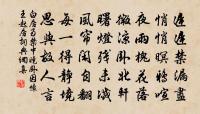 遲遲禁漏盡
悄悄暝鴉喧
夜雨槐花落
微涼卧北軒
曙燈殘未滅
風簾閑自翻
每一得靜境
思與故人言
白居易禁中曉卧因懷
王起居詩詞典網集